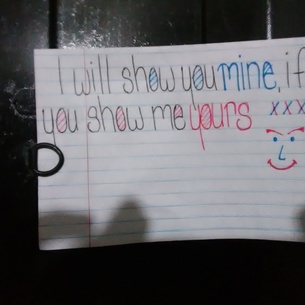 I will show you mine, if
you show me yours xxx